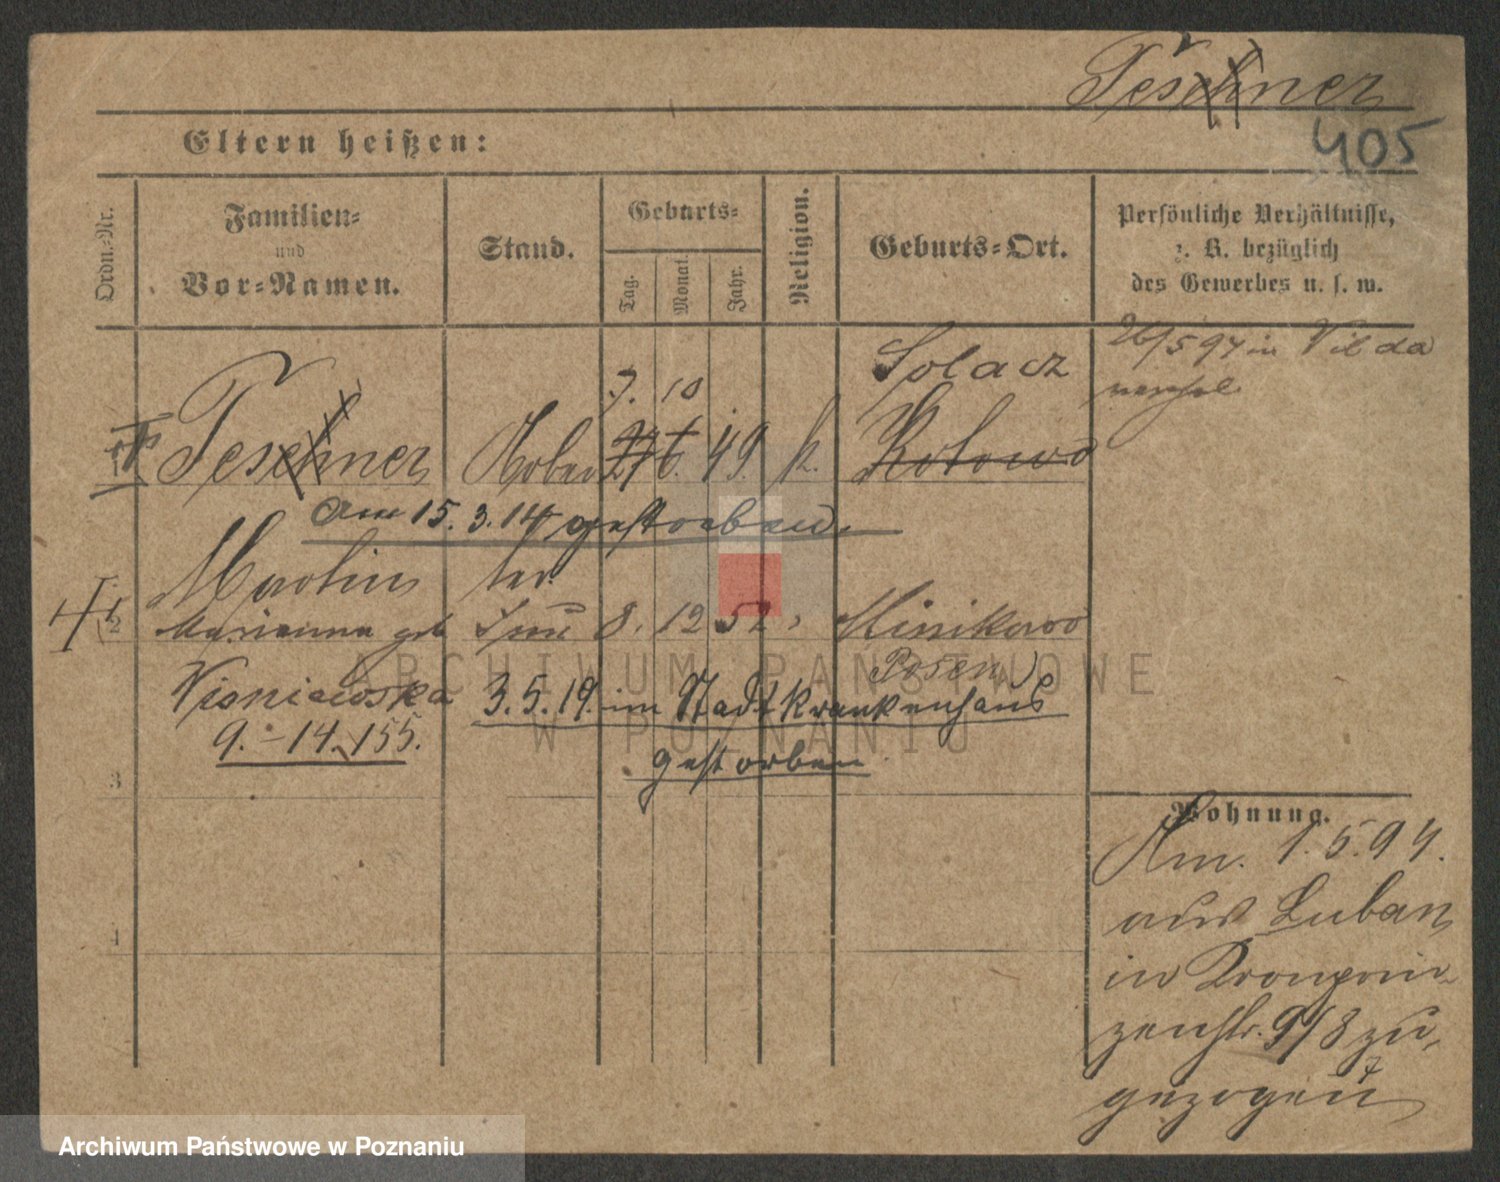 Teschner
405
Eltern heißen:
Ordn.-Nr.
Familien-
und
Vor-Namen.
Stand.
Geburts-
Tag.
Monat.
Jahr.
Religion.
Geburts-Ort.
Persönliche Verhältnisse,
z. B. bezüglich
des Gewerbes u. s. w.
26/5 94 in Vilda
Solacz
7. 10
1 Teschner 27 6. 49. k. Kotowo
am 15. 3. 14 gestorben.
Martin
2 Marianna geb 8. 12 52 Minikowo
Posen
Wisniewska 3. 5. 19. im Stadtkrankenhaus
9. - 14. 155.
gestorben
3
Wohnung.
Am. 1. 5. 94.
aus Luban
in Kronprin-
zenstr. 9/8 zu-
gezogen
4
ARCHIWUM PAŃSTWOWE
W POZNANIU
Archiwum Państwowe w Poznaniu